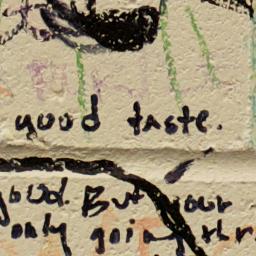 good taste.
good. But your
only going thr